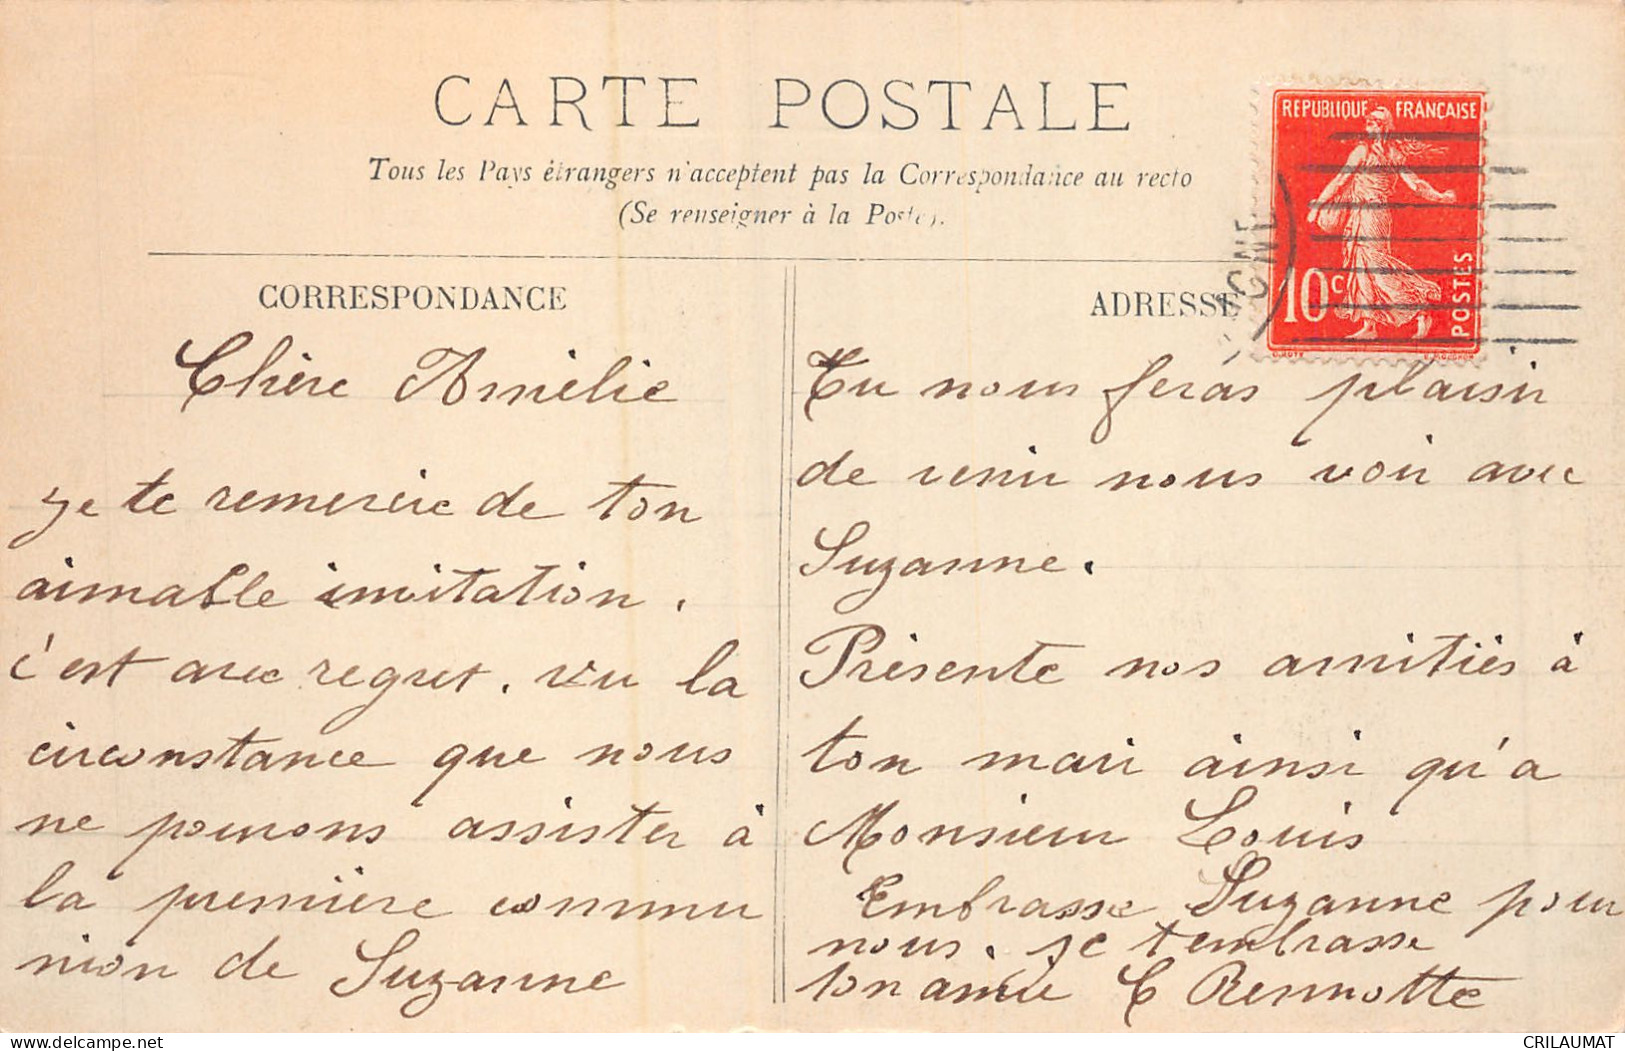 CARTE POSTALE
Tous les Pays étrangers n'acceptent pas la Correspondance au recto
(Se renseigner à la Poste).
REPUBLIQUE FRANÇAISE
10c
POSTES
CORRESPONDANCE
Chère Amélie
Je te remercie de ton
aimable invitation.
c'est avec regret, vu la
circonstance que nous
ne pouvons assister à
la première commu
nion de Suzanne
ADRESSE
Tu nous feras plaisir
de venir nous voir avec
Suzanne.
Présente nos amitiés à
ton mari ainsi qu'à
Monsieur Louis
Embrasse Suzanne pour
nous. je t'embrasse
ton amie C
delcampe.net
CRILAUMAT